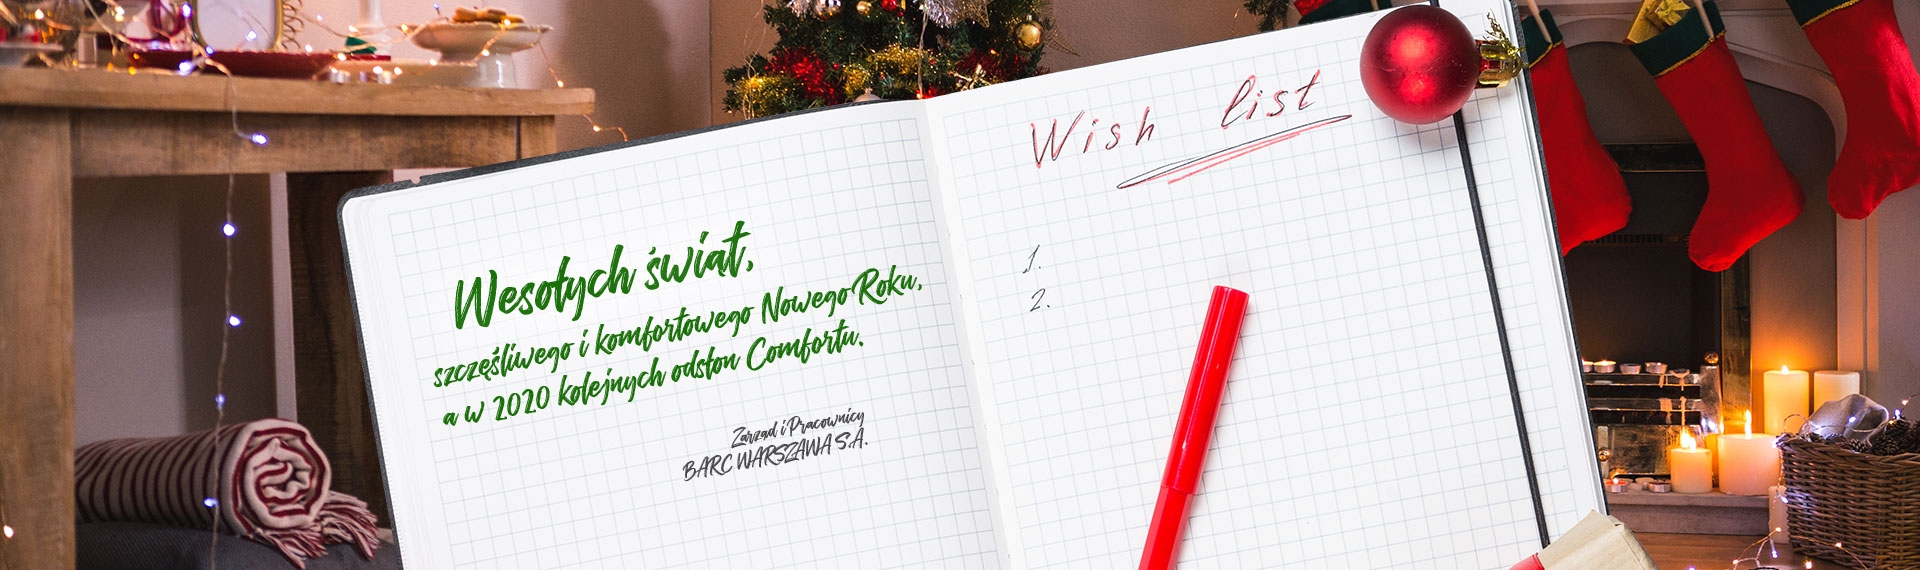 Wesołych świąt,
szczęśliwego i komfortowego Nowego Roku,
a w 2020 kolejnych odsłon Comfortu.
Zarząd i Pracownicy
BARC WARSZAWA S.A.
Wish list
1.
2.